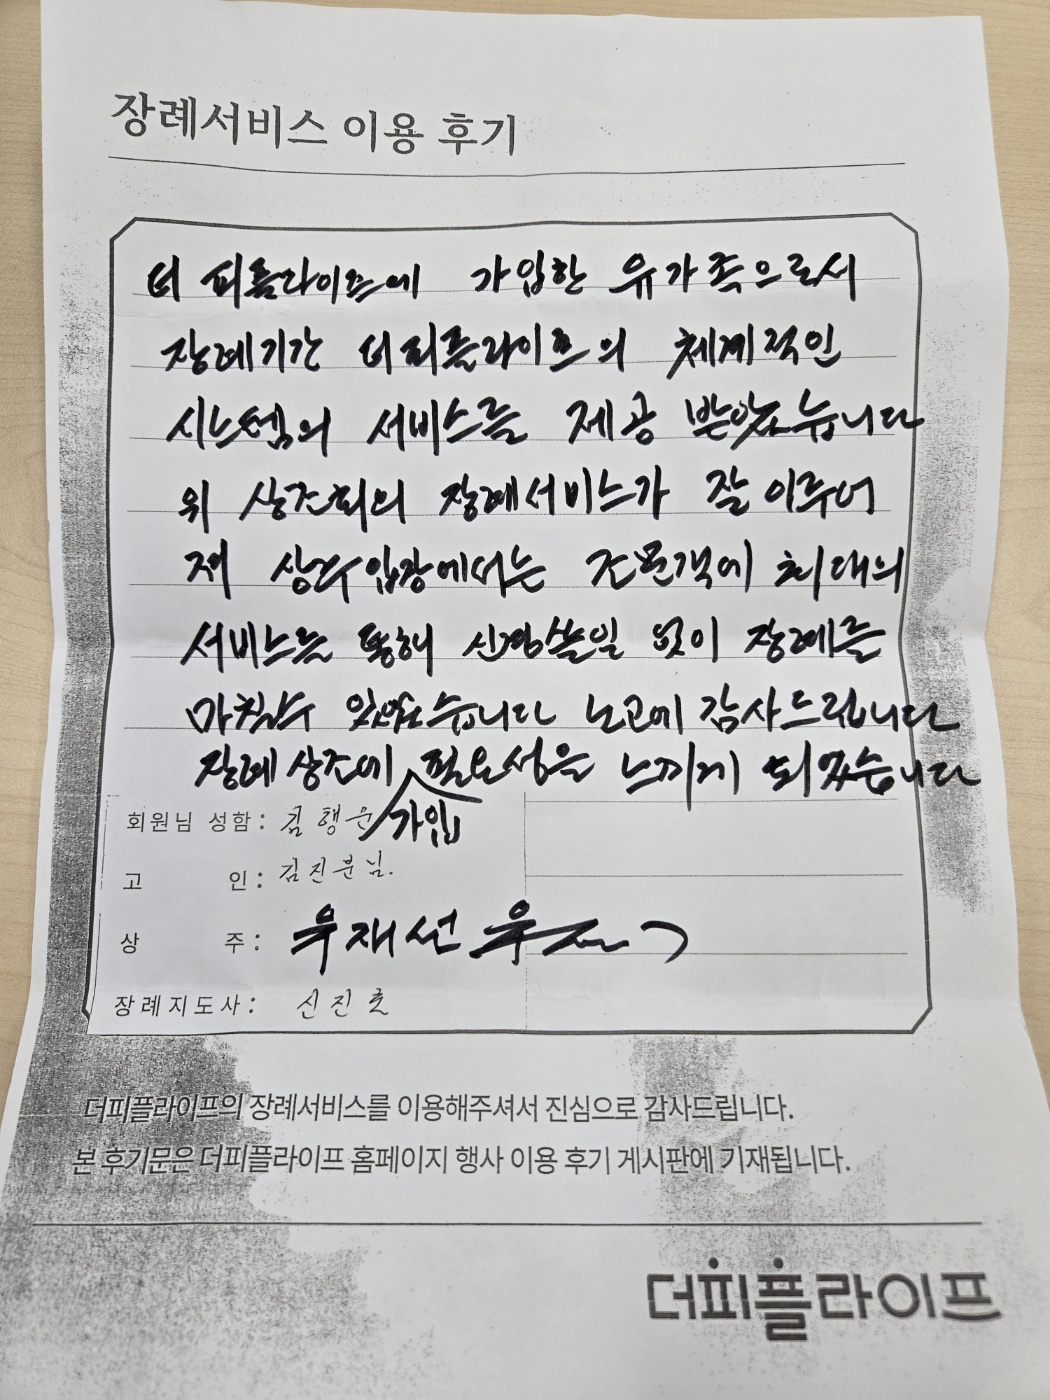 장례서비스 이용 후기
더 피플라이프에 가입한 유가족으로서
장례기간 더피플라이프의 체계적인
시스템의 서비스를 제공 받았습니다
위 상조회의 장례서비스가 잘 이루어
져 상주입장에서는 조문객에 최대의
서비스를 통해 신경쓸일 없이 장례를
마칠수 있었습니다 노고에 감사드립니다
장례 상조에 가입 필요성을 느끼게 되었습니다
회원님 성함: 김행운
고 인: 김진분님.
상 주: 우재선
장례지도사: 신진호
더피플라이프의 장례서비스를 이용해주셔서 진심으로 감사드립니다.
본 후기문은 더피플라이프 홈페이지 행사 이용 후기 게시판에 기재됩니다.
더피플라이프